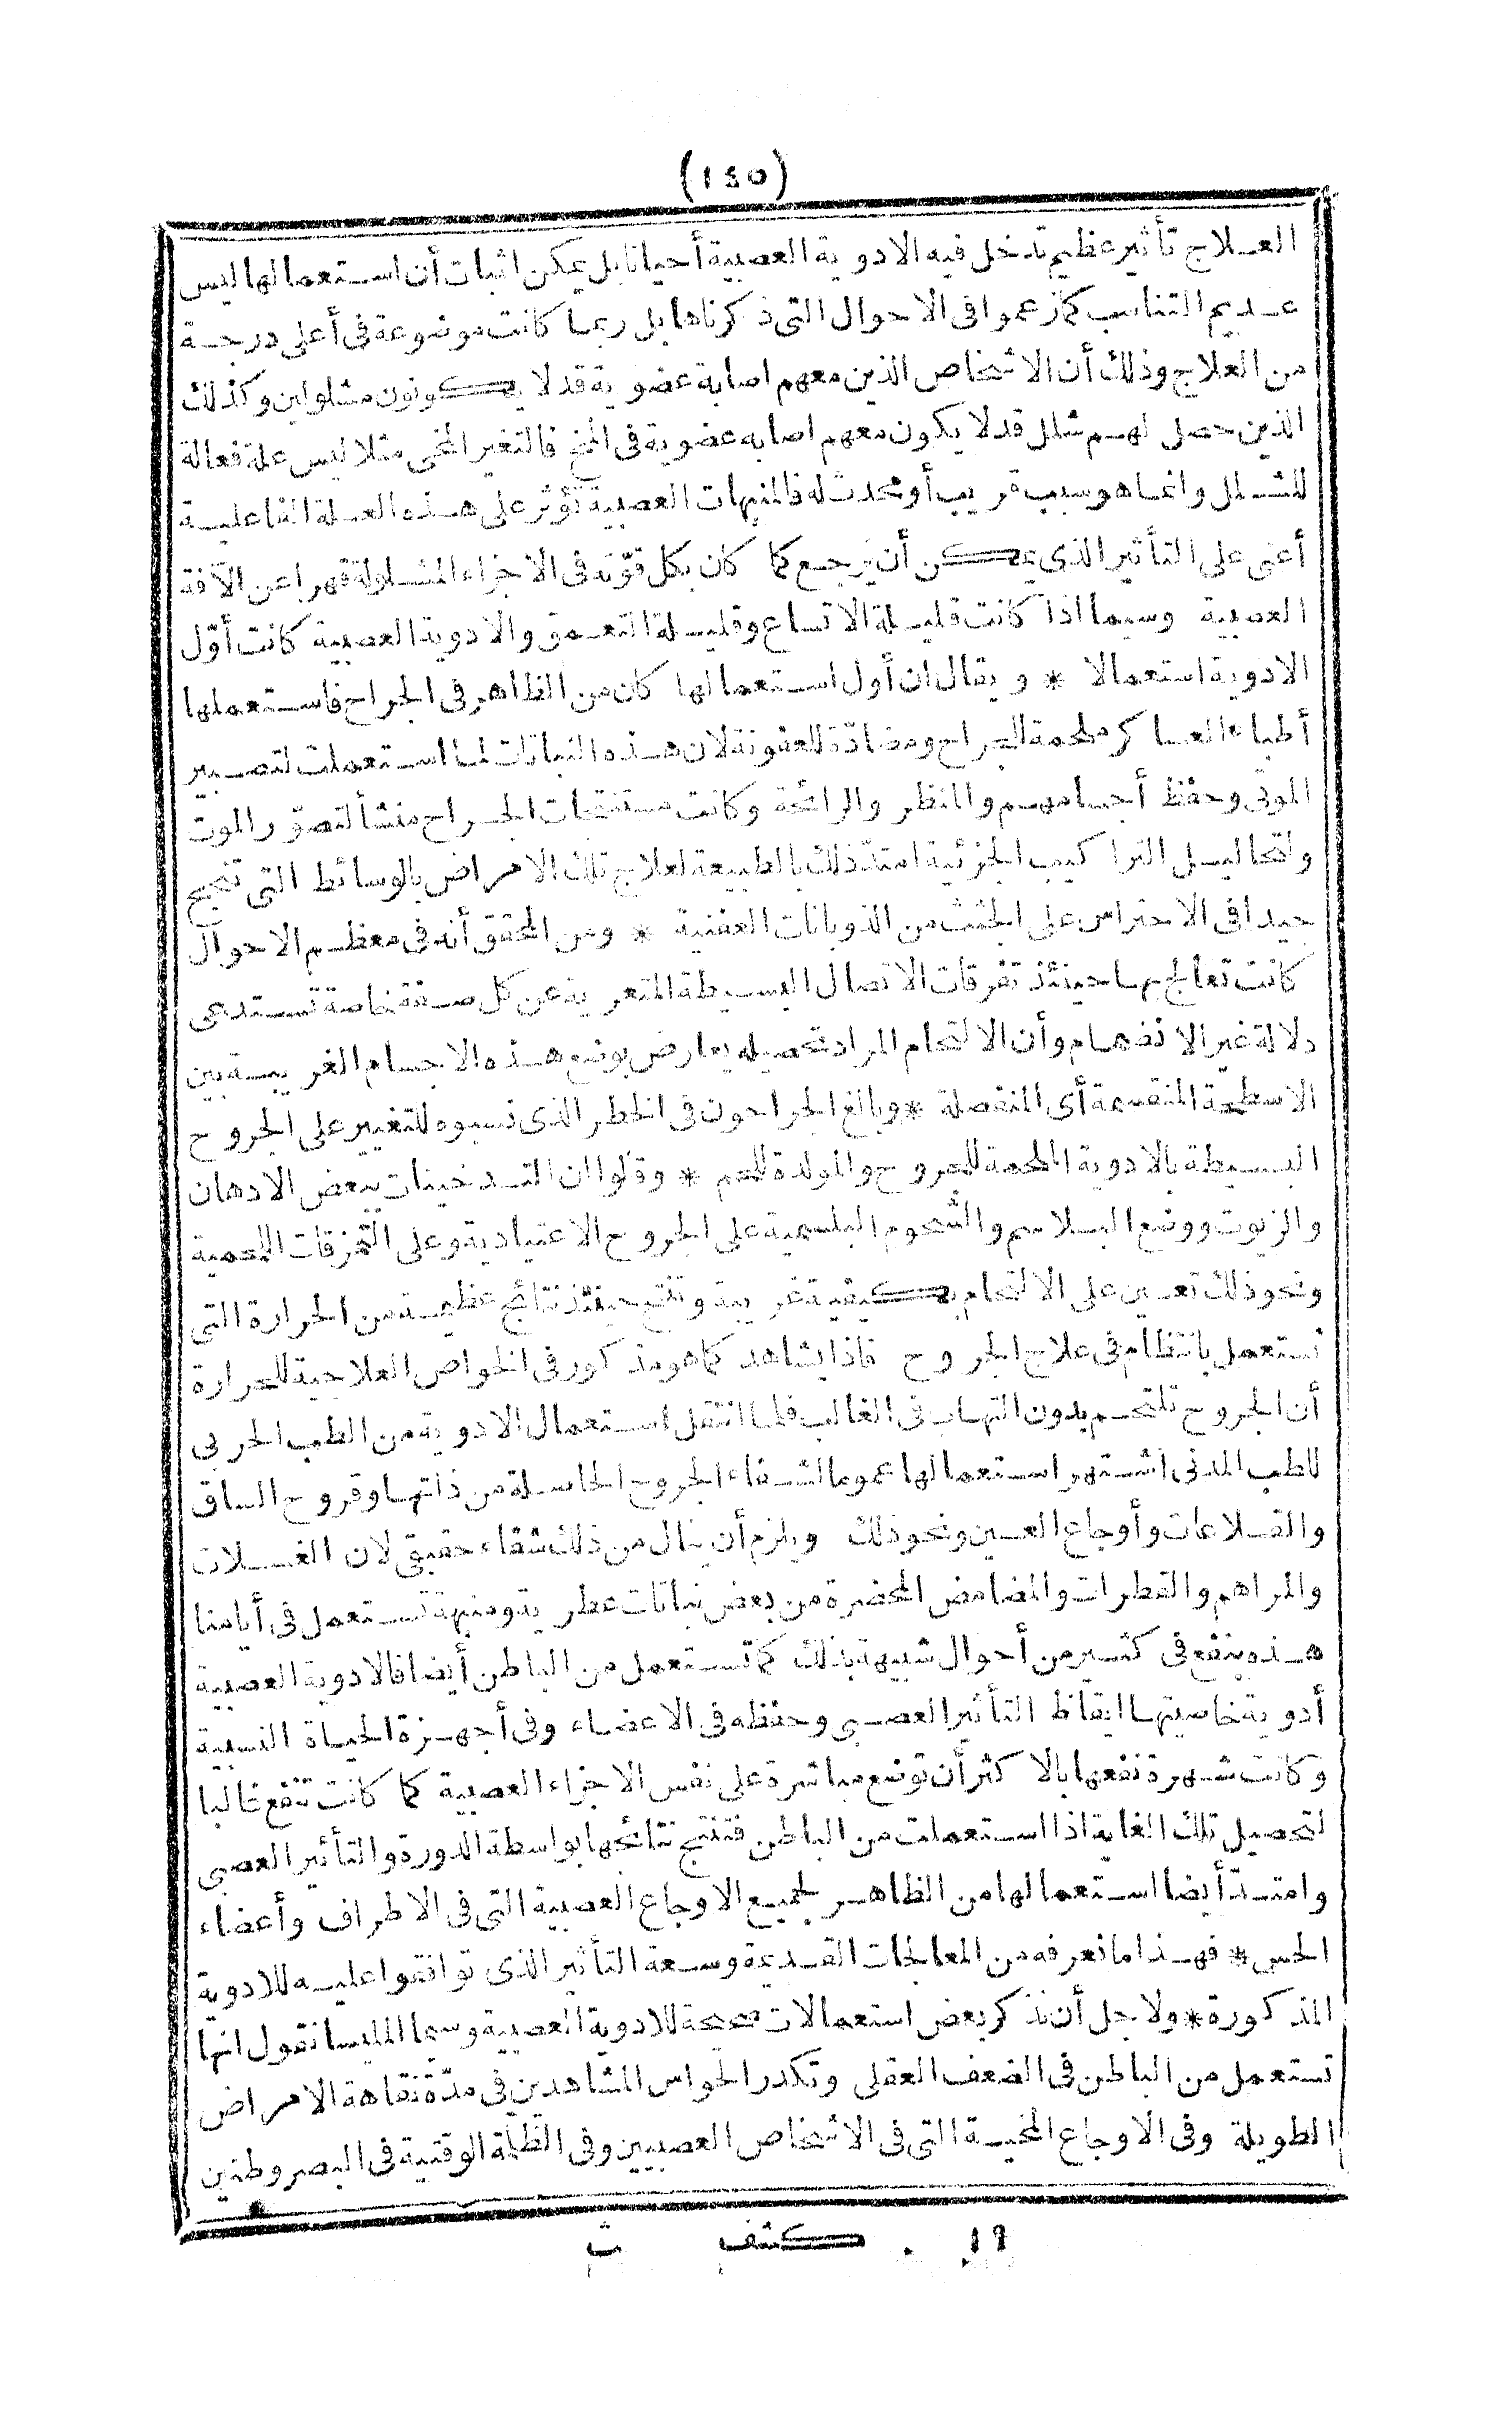 (١٤٥)
العلاج تأثير عظيم تدخل فيه الادوية العصبية أحيانا بل يمكن اثبات أن استعمالها ليس
عديم التناسب كما زعموا فى الاحوال التى ذكرناها بل ربما كانت موضوعة فى أعلى درجة
من العلاج وذلك أن الاشخاص الذين معهم اصابة عضوية قد لا يكونون مشلولين وكذلك
الذين حصل لهم شلل قد لا يكون معهم اصابه عضوية فى المخ فالتغير المخى مثلا ليس علة فعالة
للشلل وانما هو سبب قريب أو محدث له فالمنبهات العصبية تؤثر على هذه العلة الفاعلية
أعنى على التأثير الذى يمكن أن يرجع كما كان بكل قوّته فى الاجزاء المشلولة قهرا عن الآفة
العصبية وسيما اذا كانت قليلة الاتساع وقليلة التعمق والادوية العصبية كانت أوّل
الادوية استعمالا * ويقال ان أول استعمالها كان من الظاهر فى الجراح فاستعملها
أطباء العساكر ملحمة للجراح ومضادّة للعفونة لان هذه النباتات لما استعملت لتصبير
الموتى وحفظ أجسامهم والمنظر والرائحة وكانت مستنتجات الجراح منشأ لتصوّر الموت
ولتحاليل التراكيب الجزئية امتدّ ذلك بالطبيعة لعلاج تلك الامراض بالوسائط التى تنجح
جيدا فى الاحتراس على الجثث من الذوبانات العفنية * ومن المحقق أنه فى معظم الاحوال
كانت تعالج بها حينئذ تفرقات الاتصال البسيطة المتعرية عن كل صفة خاصة تستدعى
دلالة غير الانضمام وأن الالتحام المراد تحصيله يعارض بوضع هذه الاجسام الغريبة بين
الاسطحة المنقسمة أى المنفصلة * وبالغ الجراحون فى الخطر الذى نسبوه للتغيير على الجروح
البسيطة بالادوية الملحمة للجروح والمولدة للحم * وقالوا ان التدخينات ببعض الادهان
والزيوت ووضع البلاسم والشحوم البلسمية على الجروح الاعتيادية وعلى التمزقات اللحمية
ونحو ذلك تعين على الالتحام بكيفية غريبة وتنتج حينئذ نتائج عظيمة من الحرارة التى
تستعمل بانتظام فى علاج الجروح فاذا يشاهد كما هو مذكور فى الخواص العلاجية للحرارة
أن الجروح تلتحم بدون التهاب فى الغالب فلما انتقل استعمال الادوية من الطب الحربى
للطب المدنى اشتهر استعمالها عموما لشفاء الجروح الحاصلة من ذاتها وقروح الساق
والقلاعات وأوجاع العين ونحو ذلك ويلزم أن ينال من ذلك شفاء حقيقى لان الغسلات
والمراهم والقطرات والمضامض المحضرة من بعض نباتات عطرية ومنبهة تستعمل فى أيامنا
هذه بنفع فى كثير من أحوال شبيهة بذلك كما تستعمل من الباطن أيضا فالادوية العصبية
أدوية خاصيتها ايقاظ التأثير العصبى وحفظه فى الاعضاء وفى أجهزة الحياة النسبية
وكانت شهرة نفعها بالاكثر أن توضع مباشرة على نفس الاجزاء العصبية كما كانت تنفع غالبا
لتحصيل تلك الغاية اذا استعملت من الباطن فتنتج نتائجها بواسطة الدورة والتأثير العصبى
وامتدّ أيضا استعمالها من الظاهر لجميع الاوجاع العصبية التى فى الاطراف وأعضاء
الحس * فهذا ما نعرفه من المعالجات القديمة وسعة التأثير الذى توافقوا عليه للادوية
المذكورة * ولاجل أن نذكر بعض استعمالات صحيحة للادوية العصبية وسيما المليسا نقول انها
تستعمل من الباطن فى الضعف العقلى وتكدر الحواس المشاهدين فى مدّة نقاهة الامراض
الطويلة وفى الاوجاع المخية التى فى الاشخاص العصبيين وفى الظلمة الوقتية فى البصر وطنين
١٩ كشف ث